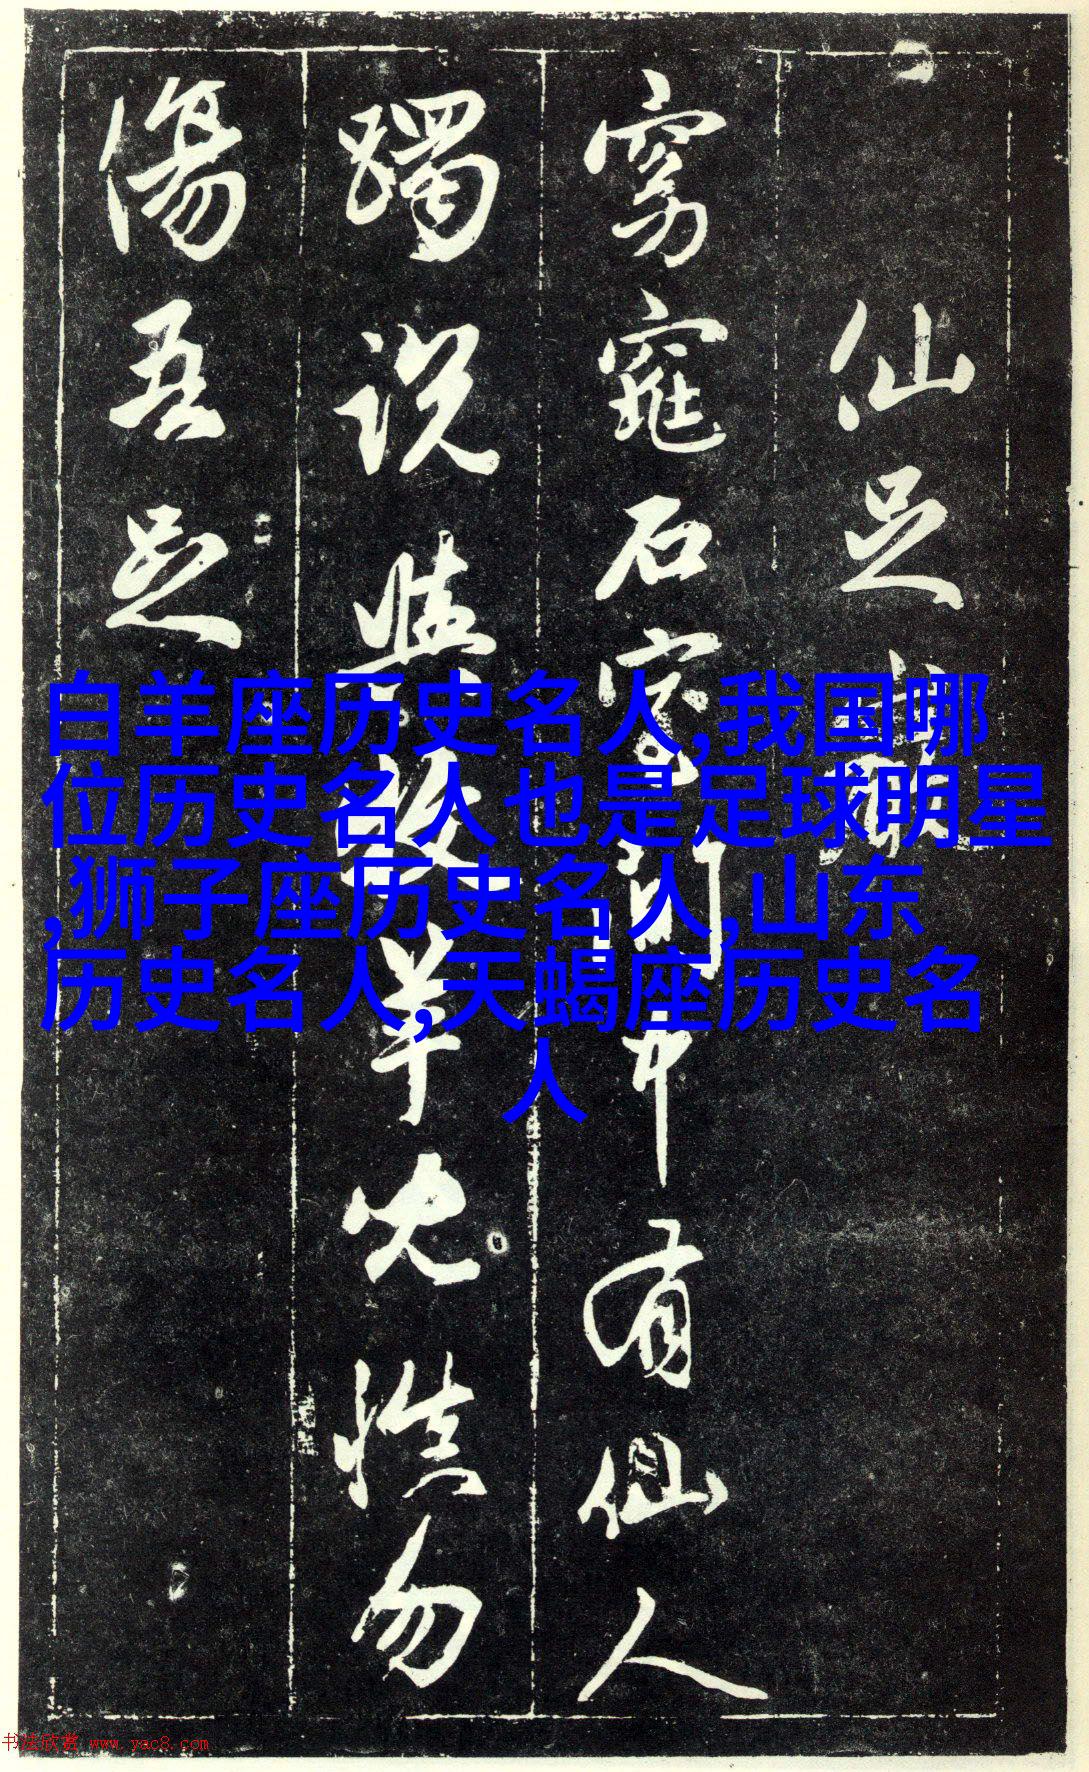 仙足
窈窕石室間中有仙人
躅説與牧羊兒慎勿
傷吾足
白羊座历史名人,我国哪
位历史名人也是足球明星
,狮子座历史名人,山东
历史名人,天蝎座历史名
人
书法欣赏 www.yac8.com